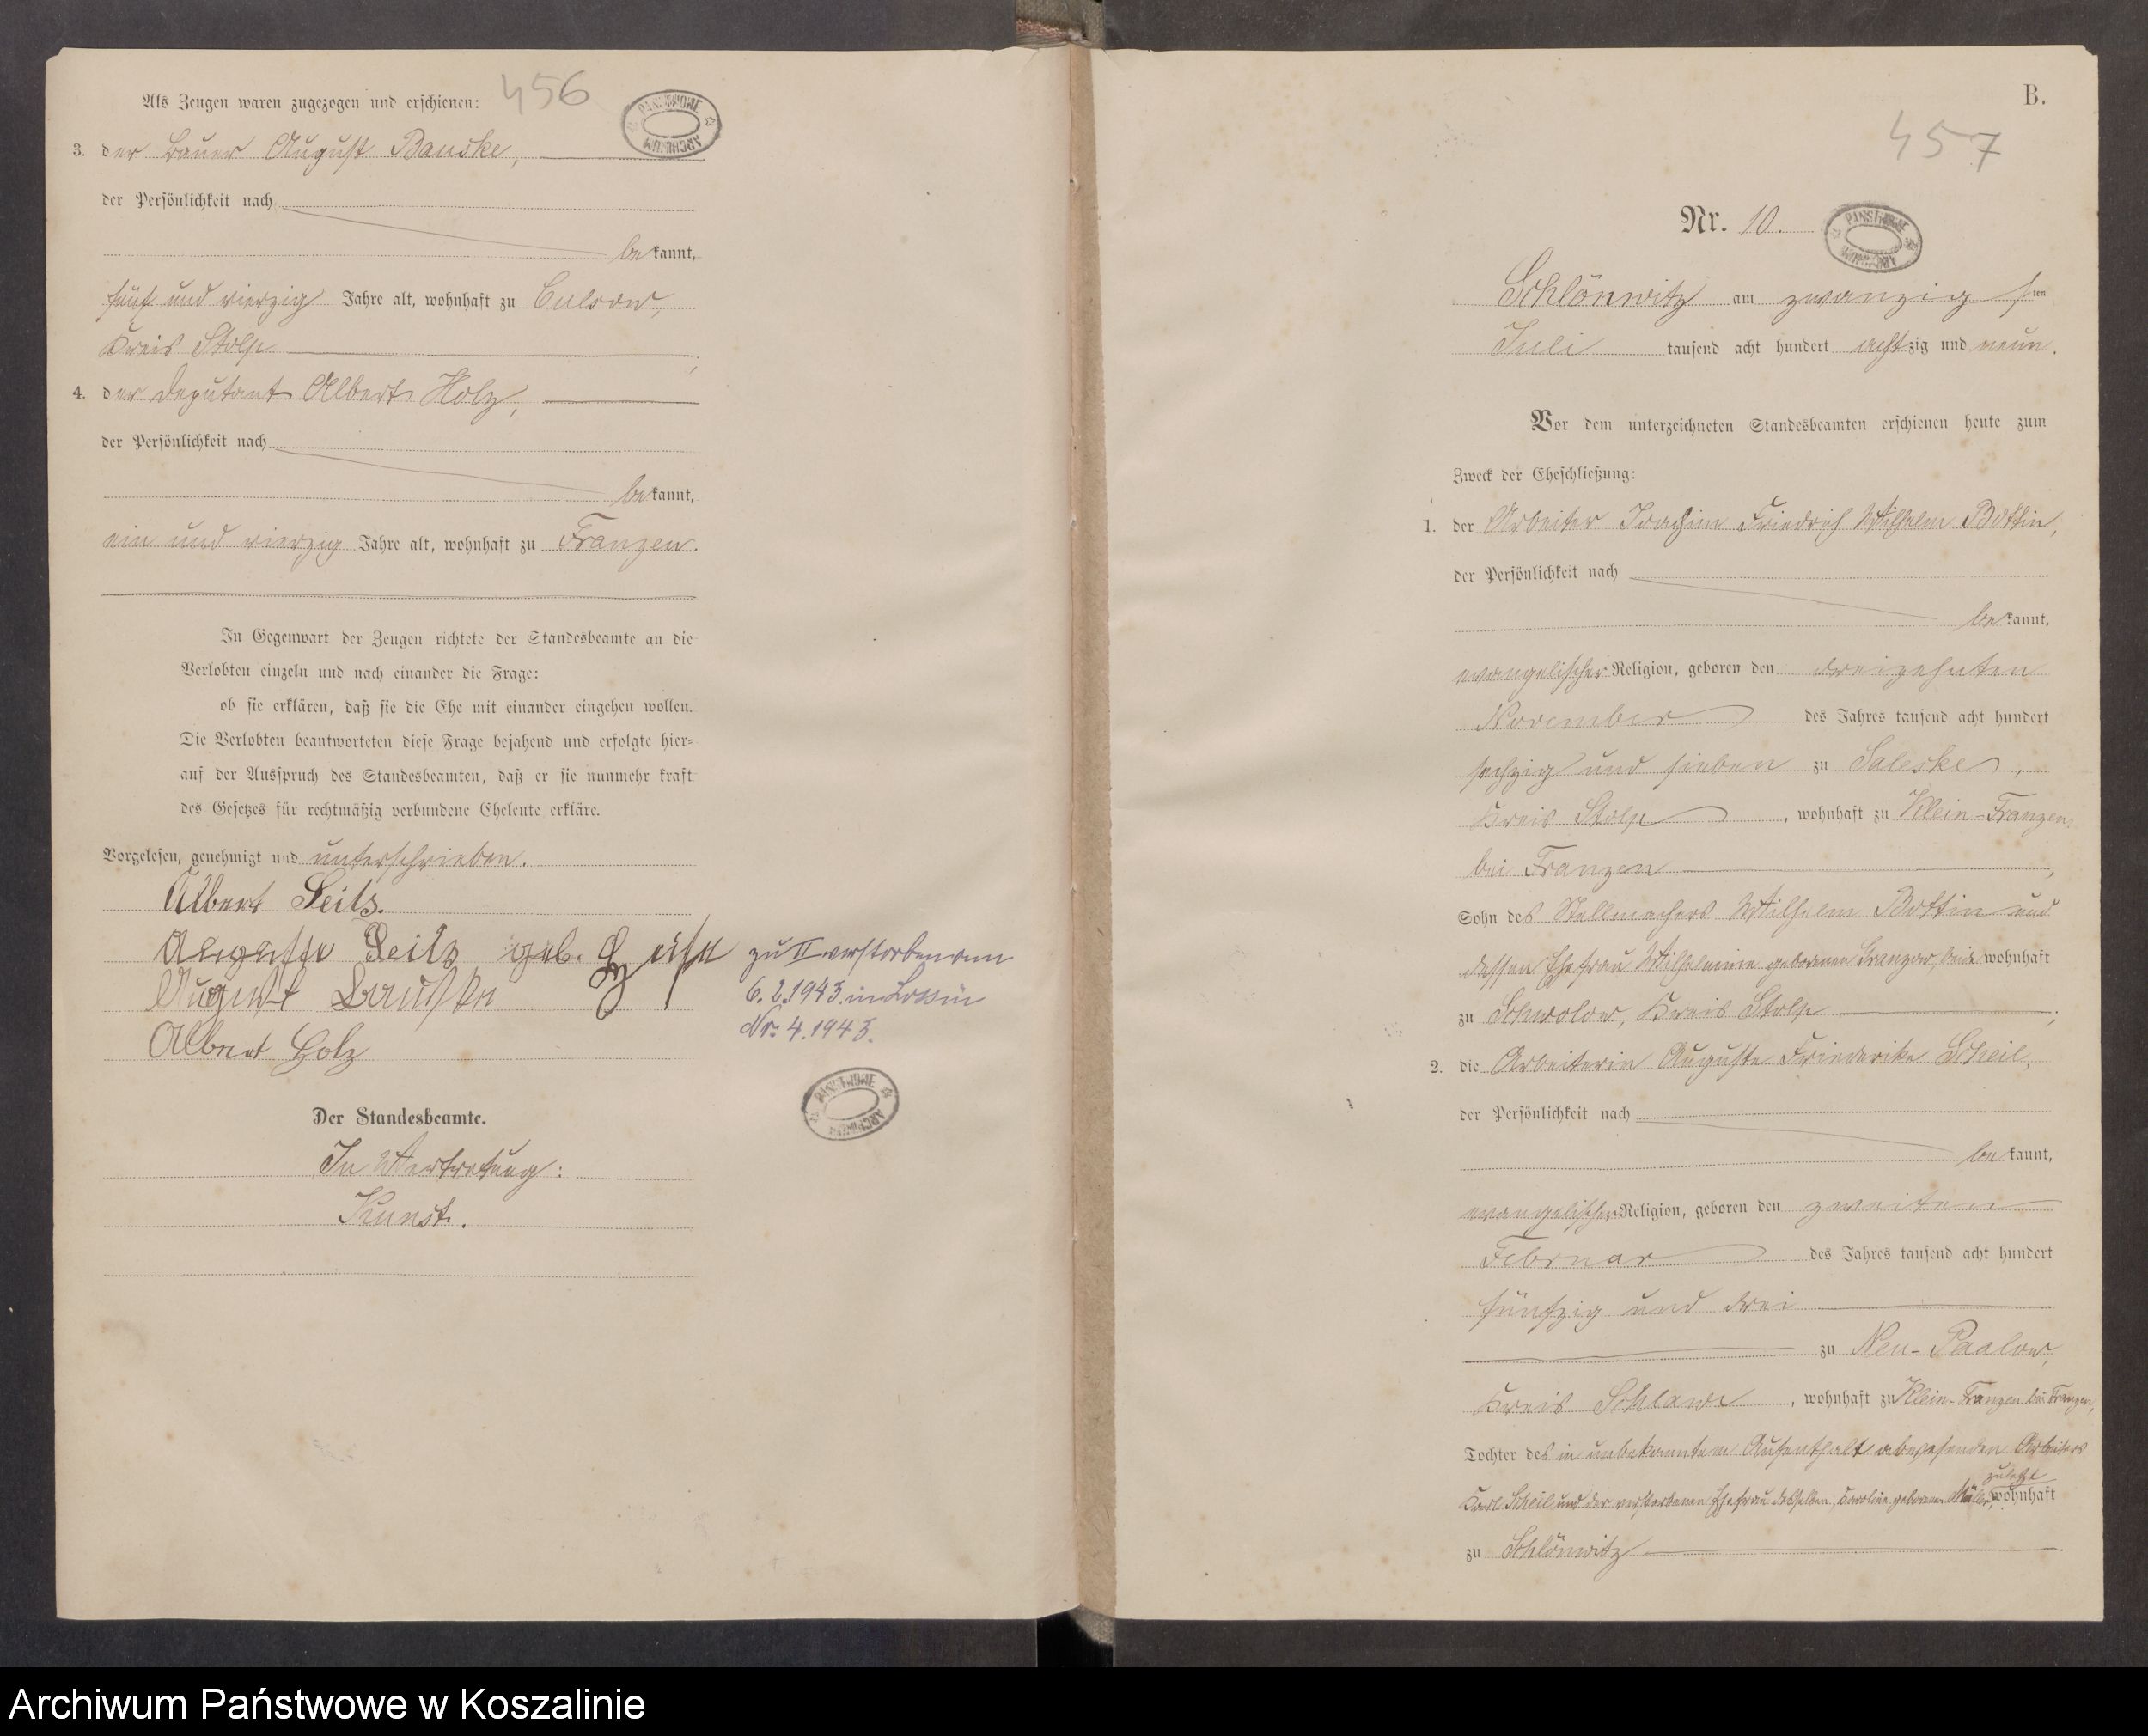 456
Als Zeugen waren zugezogen und erschienen:
PAŃSTWOWE ARCHIWUM
3. der Bauer August Bauske,
der Persönlichkeit nach
bekannt,
fünf und vierzig Jahre alt, wohnhaft zu Culsow,
Kreis Stolp
4. der Deputant Albert Holz,
der Persönlichkeit nach
bekannt,
ein und vierzig Jahre alt, wohnhaft zu Franzen.
In Gegenwart der Zeugen richtete der Standesbeamte an die
Verlobten einzeln und nach einander die Frage:
ob sie erklären, daß sie die Ehe mit einander eingehen wollen.
Die Verlobten beantworteten diese Frage bejahend und erfolgte hier-
auf der Ausspruch des Standesbeamten, daß er sie nunmehr kraft
des Gesetzes für rechtmäßig verbundene Eheleute erkläre.
Vorgelesen, genehmigt und unterschrieben.
Albert Seils.
Auguste Seils geb.
August Bauske
Albert Holz
zu II verstorben am
6.2.1943 in Lossin
Nr. 4.1943.
PAŃSTWOWE ARCHIWUM
Der Standesbeamte.
In Vertretung:
Kunst.
B.
457
Nr. 10.
PAŃSTWOWE ARCHIWUM
Schlönwitz am zwanzigsten
Juli tausend acht hundert achtzig und neun.
Vor dem unterzeichneten Standesbeamten erschienen heute zum
Zweck der Eheschließung:
1. der Arbeiter Joachim Friedrich Wilhelm Bottin,
der Persönlichkeit nach
bekannt,
evangelischer Religion, geboren den dreizehnten
November des Jahres tausend acht hundert
sechzig und sieben zu Saleske,
Kreis Stolp, wohnhaft zu Klein-Franzen
bei Franzen,
Sohn des Stellmachers Wilhelm Bottin und
dessen Ehefrau Wilhelmine geborenen Granzow, beide wohnhaft
zu Schwolow, Kreis Stolp;
2. die Arbeiterin Auguste Friederike Scheil,
der Persönlichkeit nach
bekannt,
evangelischer Religion, geboren den zweiten
Februar des Jahres tausend acht hundert
fünfzig und drei
zu Neu-Paalow,
Kreis Schlawe, wohnhaft zu Klein-Franzen bei Franzen,
Tochter des in unbekanntem Aufenthalt abwesenden Arbeiters
Karl Scheil und der verstorbenen Ehefrau desselben, Karoline geborenen Müller, zuletzt wohnhaft
zu Schlönwitz
Archiwum Państwowe w Koszalinie